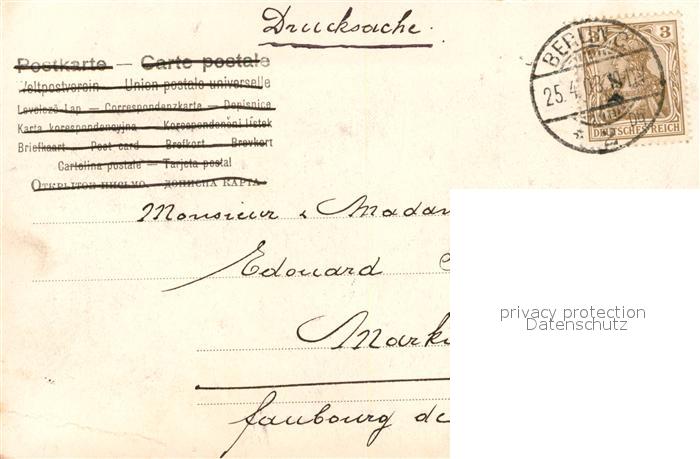 Drucksache.
Postkarte — Carte postale
Weltpostverein — Union postale universelle
Levelező-Lap — Correspondenzkarte — Dopisnice
Karta korespondencyjna — Korespondenční lístek
Briefkaart — Post card — Brefkort — Brevkort
Cartolina postale — Tarjeta postal
Открытое письмо — дописна карта
BERLIN C.
25.4.
3
DEUTSCHES REICH
Monsieur & Madam
Edouard
Mark
faubourg de
privacy protection
Datenschutz